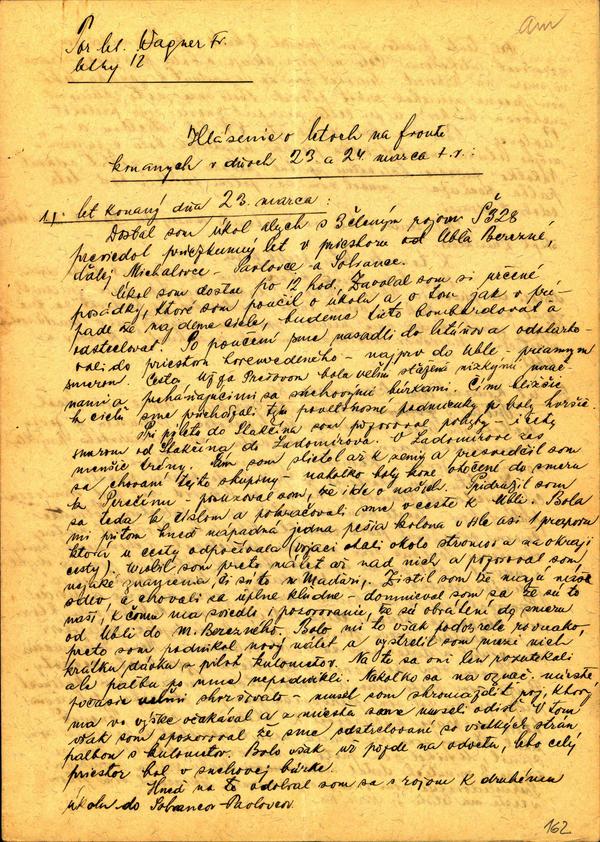 am
Por. let. Wagner Fr.
letky 12
Hlásenie o letoch na fronte
konaných v dňoch 23. a 24. marca t. r.:
1/. let konaný dňa 23. marca:
Dostal som úkol abych s 3 členým rojom Š328
previedol prieskumný let v priestore od Ubla Berezné,
ďalej Michalovce - Pavlovce a Sobrance.
Úkol som dostal po 12 hod. Zavolal som si určené
posádky, ktoré som poučil o úkolu a o tom jak v prí-
pade že najdeme ciele, budeme tieto bombardovať a
ostrelovať. Po poučení sme nasadli do letúňov a odštarto-
vali do priestoru horeuvedeného - najprv do Uble - priamym
smerom. Cesta už za Prešovom bola veľmi sťažená nízkymi mrač-
nami a prehánajúcimi sa snehovými búrkami. Čím bližšie
k cielu sme prichádzali tým poveternostné podmienky boly horšie.
Pri prílete do Stakčína som pozoroval pohyby - i čaty
smerom od Stakčína do Ladomírova. V Ladomírove zas
menšie trény. Tam som sletel až k zemi a presvedčil som
sa chovaní tejto skupiny - nakoľko boly kone otočené do smeru
k Perečínu - považoval som, že ide o našich. Pridružil som
sa teda k číslom a pokračovali sme v ceste k Ubli. Bola
mi pritom hneď nápadná jedna pešia kolona v sile asi 1 práporu
ktorá u cesty odpočívala (vojaci stáli okolo stromov a na okraji
cesty). Urobil som preto nálet až nad nich a pozoroval som
nejaké znamenia, či sú to Maďari. Zistil som že majú
odev, a chovali sa úplne kľudne - domnieval som sa že sú to
naši, k čomu ma sviedlo i pozorovanie, že sú obrátení do smeru
od Ubli do M. Berezného. Bolo mi to však podozrelé rovnako,
preto som podnikol nový nálet a vystrelil som medzi nich
krátku dávku z pilot. kulometov. Na to sa oni len rozutekali
ale paľbu po mne nepodnikli. Nakoľko sa na označ. mieste
počasie veľmi zhoršovalo - musel som skromaždiť roj, ktorý
ma vo výške očakával a z miesta sme museli odísť. V tom
však som spozoroval že sme odstreľovaní so všetkých strán
paľbou s kulometov. Bolo však už pozde na odvetu, lebo celý
priestor bol v snehovej búrke.
Hneď na to odobral som sa s rojom k druhému
úkolu do Sobrancov-Pavlovcov.
162